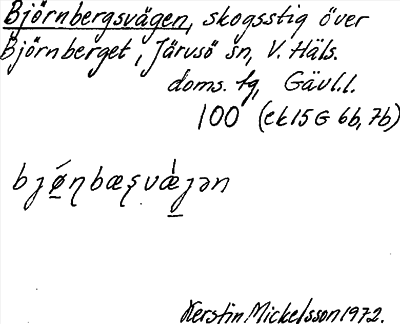 Björnbergsvägen, skogsstig över
Björnberget, Järvsö sn, V. Häls.
doms. tg, Gävl.l.
100 (ek 15 G 6b, 7b)
bȷǿ̲ɳbæʂvæ̲̀ȷən
Kerstin Mickelsson 1972.